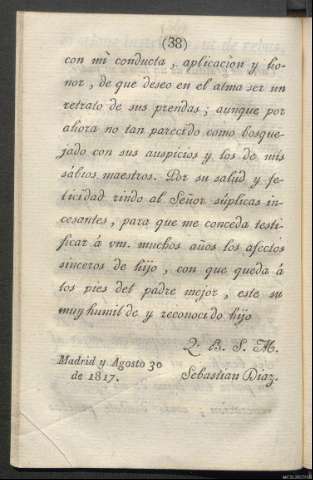 (38)
con mi conducta, aplicacion y ho-
nor, de que deseo en el alma ser un
retrato de sus prendas; aunque por
ahora no tan parecido como bosque-
jado con sus auspicios y los de mis
sábios maestros. Por su salud y fe-
licidad rindo al Señor súplicas in-
cesantes, para que me conceda testi-
ficar á vm. muchos años los afectos
sinceros de hijo, con que queda á
los pies del padre mejor, este su
muy humilde y reconocido hijo
Q. B. S. M.
Madrid y Agosto 30
de 1817.
Sebastian Diaz.